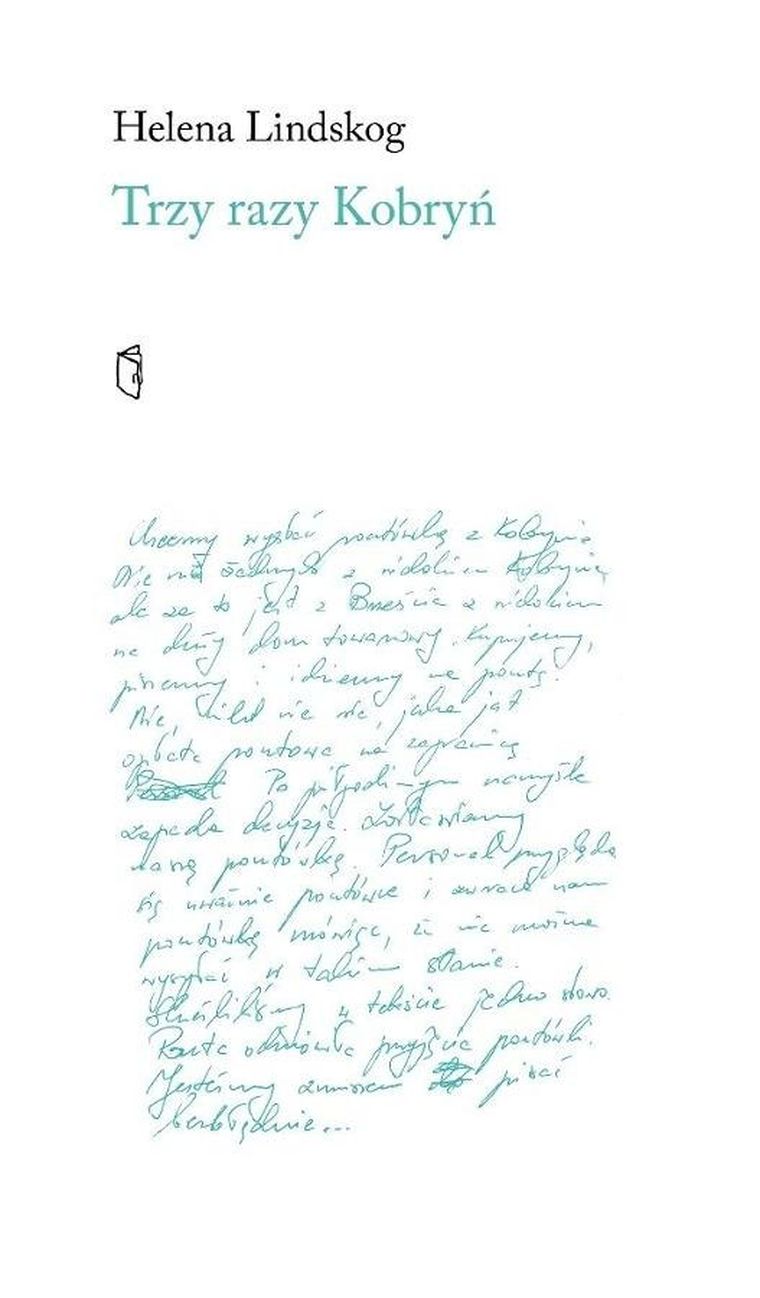 Helena Lindskog
Trzy razy Kobryń
Chcemy wysłać pocztówkę z Kobrynia
Nie ma żadnych z widokiem Kobrynia
ale za to jest z Brześcia z widokiem
na duży dom towarowy. Kupujemy,
piszemy i idziemy na pocztę.
Nie, nikt nie wie, jaka jest
opłata pocztowa na zagranicę
Po półgodzinnym namyśle
zapada decyzja. Zostawiamy
naszą pocztówkę. Personel przygląda
się uważnie pocztówce i zwraca nam
pocztówkę mówiąc, że nie można
wysyłać w takim stanie.
Skreśliliśmy w tekście jedno słowo.
Poczta odmówiła przyjęcia pocztówki.
Jesteśmy zmuszeni pisać
bezbłędnie...